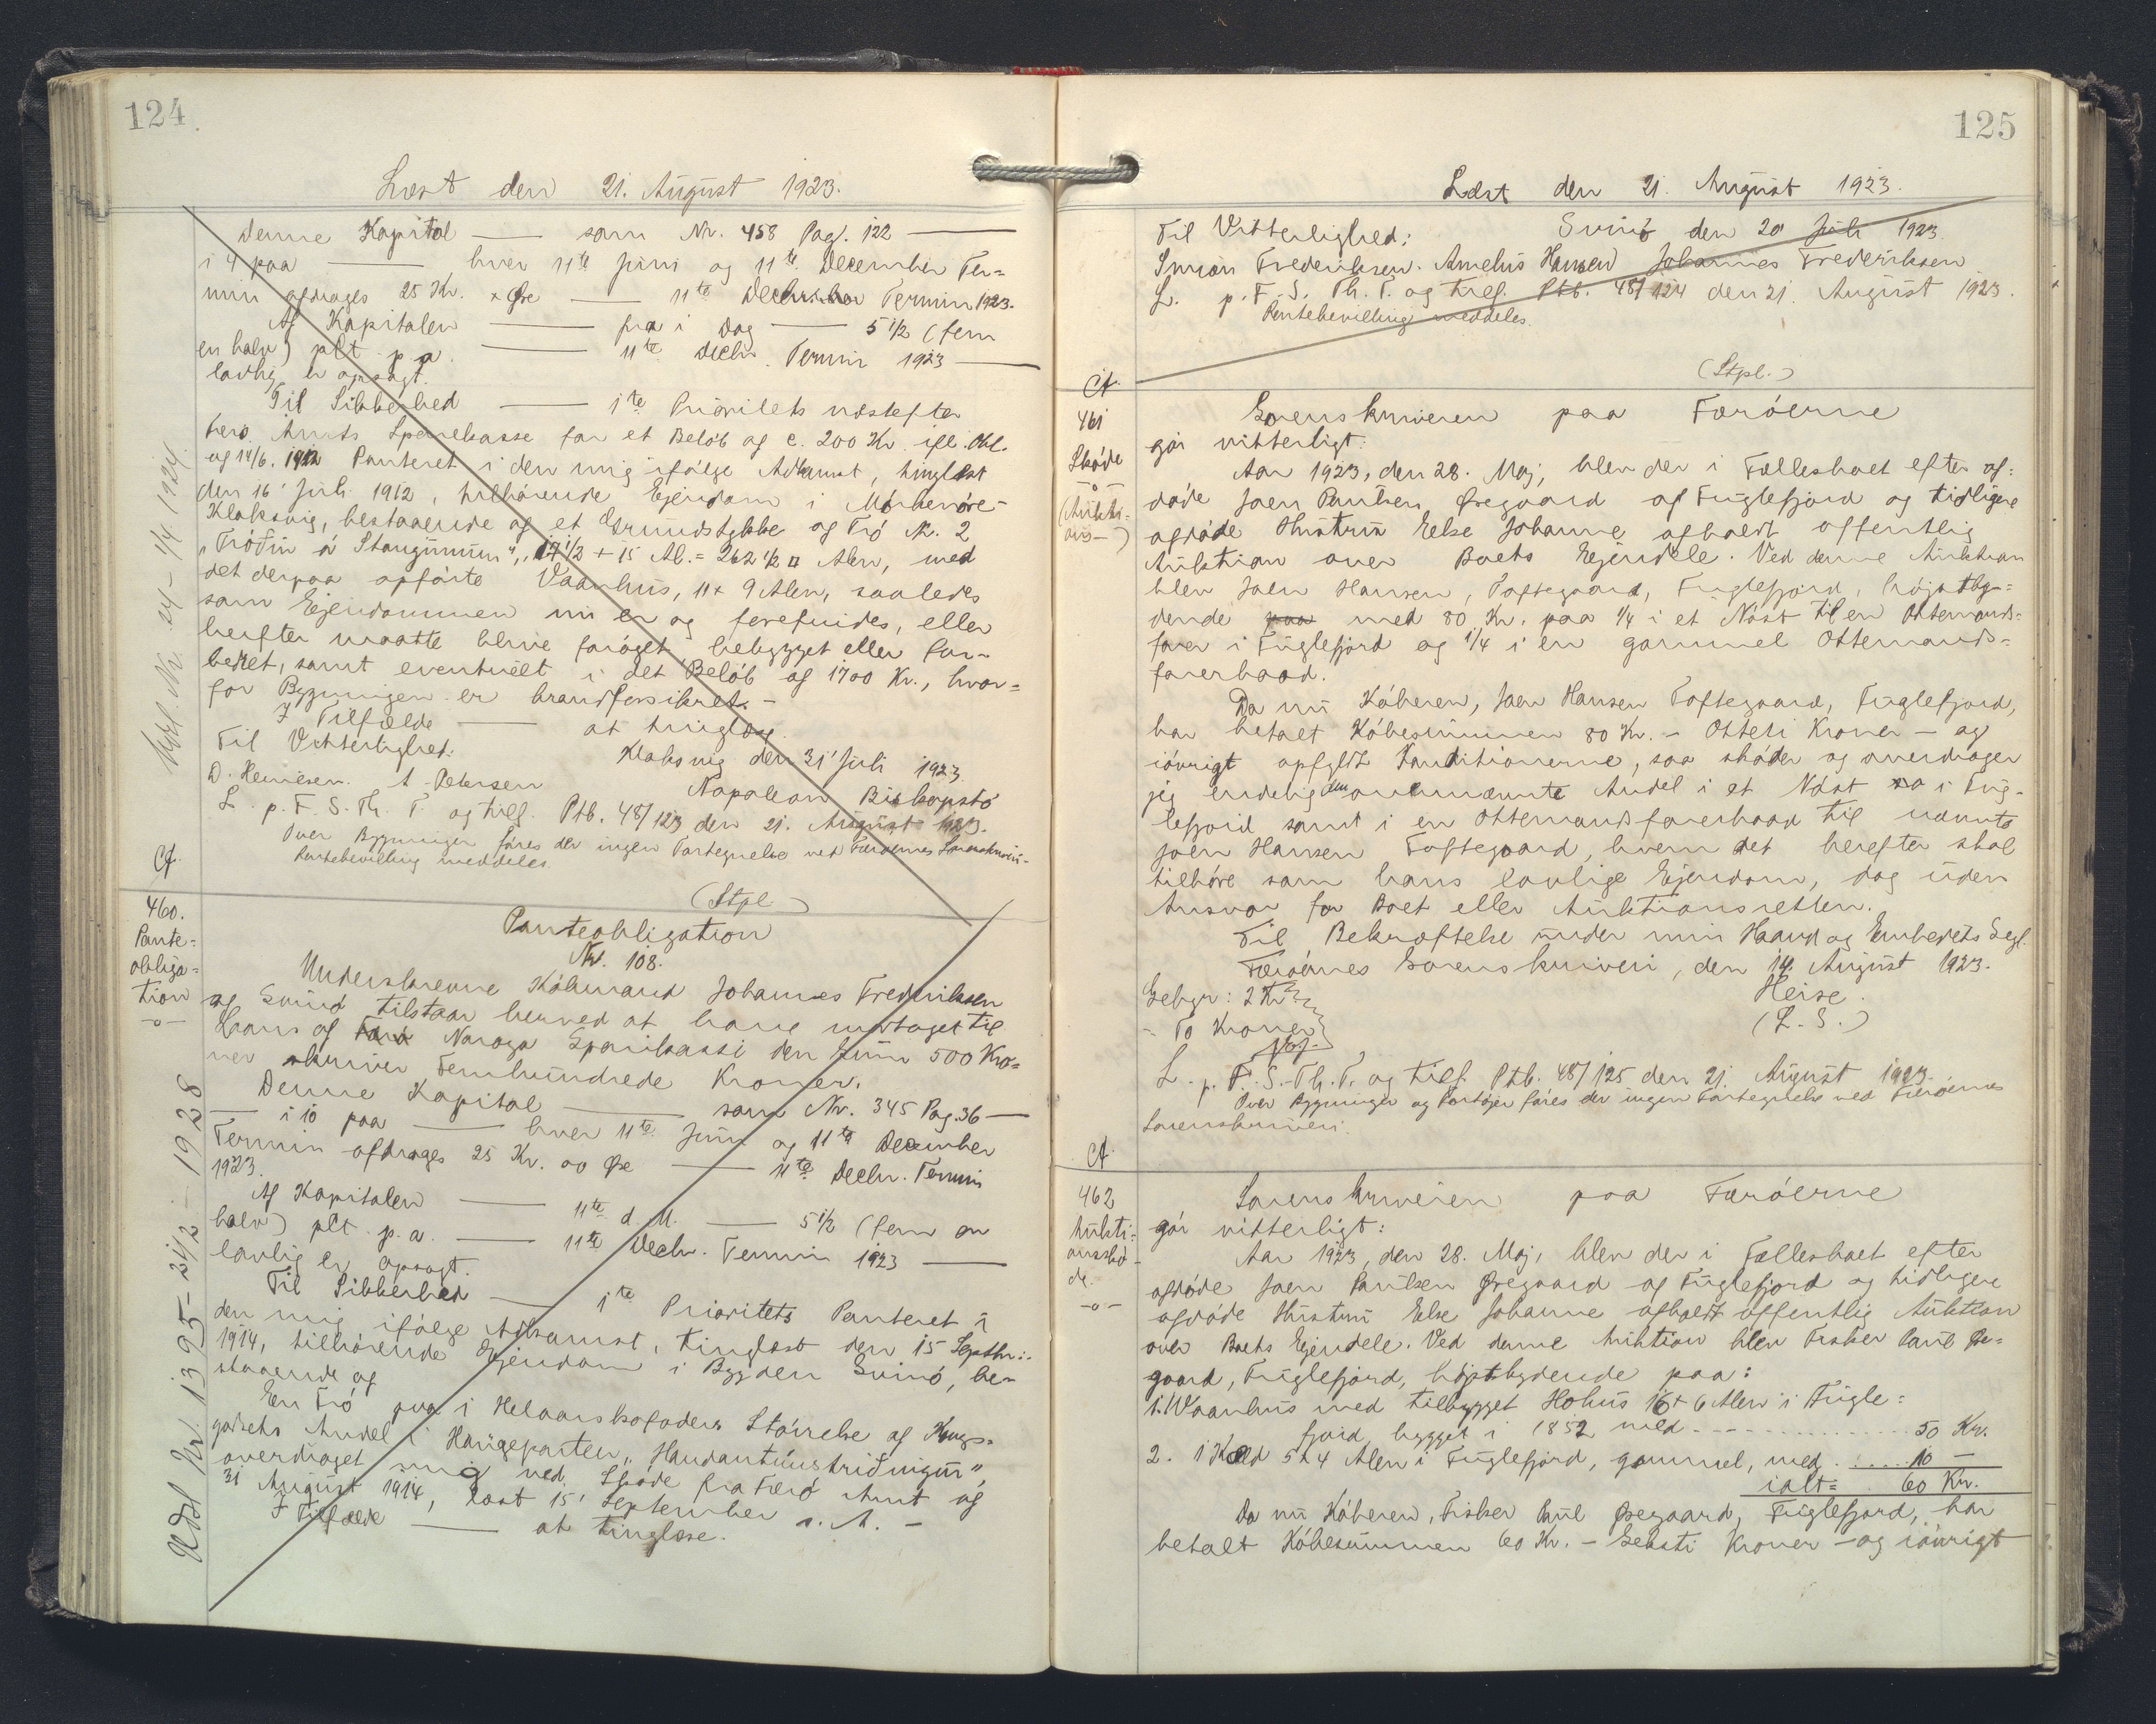 124.
Læst den 21. August 1923.
Denne Kapital — som Nr. 458 Pag. 122 —
i 4 paa — hver 11te Juni og 11te December Ter=
min afdrages 25 Kr. × Øre — 11te December Termin 1923.
Af Kapitalen — fra i Dag — 5 1/2 (fem
en halv) pCt. p. a. — 11te Decbr. Termin 1923 —
lovlig er opsagt.
Til Sikkerhed — 1te Prioritets næstefter
Færø Amts Sparekasse for et Beløb af c. 200 Kr. ifl. Obl.
af 14/6. 1912 Panteret i den mig ifølge Adkomst, tinglæst
den 16' Juli 1912, tilhørende Ejendom i
Klaksvig, bestaaende af et Grundstykke og Trø Nr. 2
"Trøðin á Stangunum", 17 1/2 + 15 Al. = 262 1/2 □ Alen, med
det derpaa opførte Vaanhus, 11 × 9 Alen, saaledes
som Ejendommen nu er og forefindes, eller
herefter maatte blive forøget bebygget eller for-
bedret, samt eventuelt i det Beløb af 1700 Kr., hvor=
for Bygningen er brandforsikret. —
I Tilfælde — at tinglæse.
Til Vitterlighed: Klaksvig den 31' Juli 1923.
D. Heinesen. A. Petersen Napoleon Biskopstø
L. p. F. S. Th. T. og tilf. Ptb. 48/123 den 21. August 1923.
Over Bygninger føres der ingen Fortegnelse ved Færøernes Sorenskriveri-
Rentebevilling meddeles
Ct.
Udsl. Nr. 24 - 1/4 1924.
(Stpl.)
460.
Pante=
obliga=
tion
-o-
Panteobligation
Nr. 108.
Underskrevne Købmand Johannes Frederiksen
af Svinø tilstaar herved at have modtaget til
Laans af Færø Norøya Sparikassi den Sum 500 Kro=
ner skriver Femhundrede Kroner.
Denne Kapital — som Nr. 345 Pag. 36 —
— i 10 paa — hver 11te Juni og 11te December
Termin afdrages 25 Kr. 00 Øre — 11te Decbr. Termin
1923.
Af Kapitalen — 11te d. M. — 5 1/2 (fem en
halv) pCt. p. a. — 11te Decbr. Termin 1923 —
lovlig er opsagt.
Til Sikkerhed — 1te Prioritets Panteret i
den mig ifølge Adkomst, tinglæst den 15 Septbr.
1914, tilhørende Ejendom i Bygden Svinø, be-
staaende af
En Trø paa i Helaarskofoders Størrelse af Kongs=
godsets Andel i Haugeparten "Handantúnstriðingur",
overdraget mig ved Skøde fra Færø Amt af
31 August 1914, læst 15' September s. A. —
I Tilfælde — at tinglæse.
Udsl Nr. 1395 - 24/2 - 1928
125
Læst den 21. August 1923.
Til Vitterlighed: Svinø den 20 Juli 1923
Simon Frederiksen. Amelius Hansen Johannes Frederiksen
L. p. F. S. Th. T. og tilf. Ptb. 48/124 den 21. August 1923.
Rentebevilling meddeles.
Ct.
(Stpl.)
461
Skøde
-o-
(Aukti-
ons-)
Sorenskriveren paa Færøerne
gør vitterligt:
Aar 1923, den 28. Maj, blev der i Fællesboet efter af=
døde Joen Paulsen Øregaard af Fuglefjord og tidligere
afdøde Hustru Else Johanne afholdt offentlig
Auktion over Boets Ejendele. Ved denne Auktion
blev Joen Hansen, Toftegaard, Fuglefjord, højstby=
dende paa med 80 Kr. paa 1/4 i et Nøst til en Ottemands=
farer i Fuglefjord og 1/4 i en gammel Ottemands=
farerbaad.
Da nu Køberen, Joen Hansen Toftegaard, Fuglefjord,
har betalt Købesummen 80 Kr. — Otteti Kroner — og
iøvrigt opfyldt Konditionerne, saa skøder og overdrager
jeg endelig den ovennævnte Andel i et Nøst i Fug-
lefjord samt i en Ottemandsfarerbaad til nævnte
Joen Hansen Toftegaard, hvem det herefter skal
tilhøre som hans lovlige Ejendom, dog uden
Ansvar for Boet eller Auktionsretten.
Til Bekræftelse under min Haand og Embedets Segl.
Færøernes Sorenskriveri, den 14. August 1923.
Heise.
(L. S.)
Gebyr: 2 Kr
- To Kroner
L. p. F. S. Th. T. og tilf. Ptb. 48/125 den 21. August 1923.
Over Bygninger og Fartøjer føres der ingen Fortegnelse ved Færøernes
Sorenskriveri.
Ct.
462
Aukti=
onsskø-
de.
-o-
Sorenskriveren paa Færøerne
gør vitterligt:
Aar 1923, den 28. Maj, blev der i Fællesboet efter
afdøde Joen Paulsen Øregaard af Fuglefjord og tidligere
afdøde Hustru Else Johanne afholdt offentlig Auktion
over Boets Ejendele. Ved denne Auktion blev Fisker Paul Øre=
gaard, Fuglefjord, højstbydende paa:
1. 1 Vaanhus med tilbygget Hohus 16 + 6 Alen i Fugle=
fjord, bygget i 1852 med . . . . . . . . . . 50 Kr.
2. 1 5 × 4 Alen i Fuglefjord, gammel, med . . . . . 10 —
ialt = . 60 Kr.
Da nu Køberen, Fisker Paul Øregaard, Fuglefjord, har
betalt Købesummen 60 Kr. — Seksti Kroner — og iøvrigt